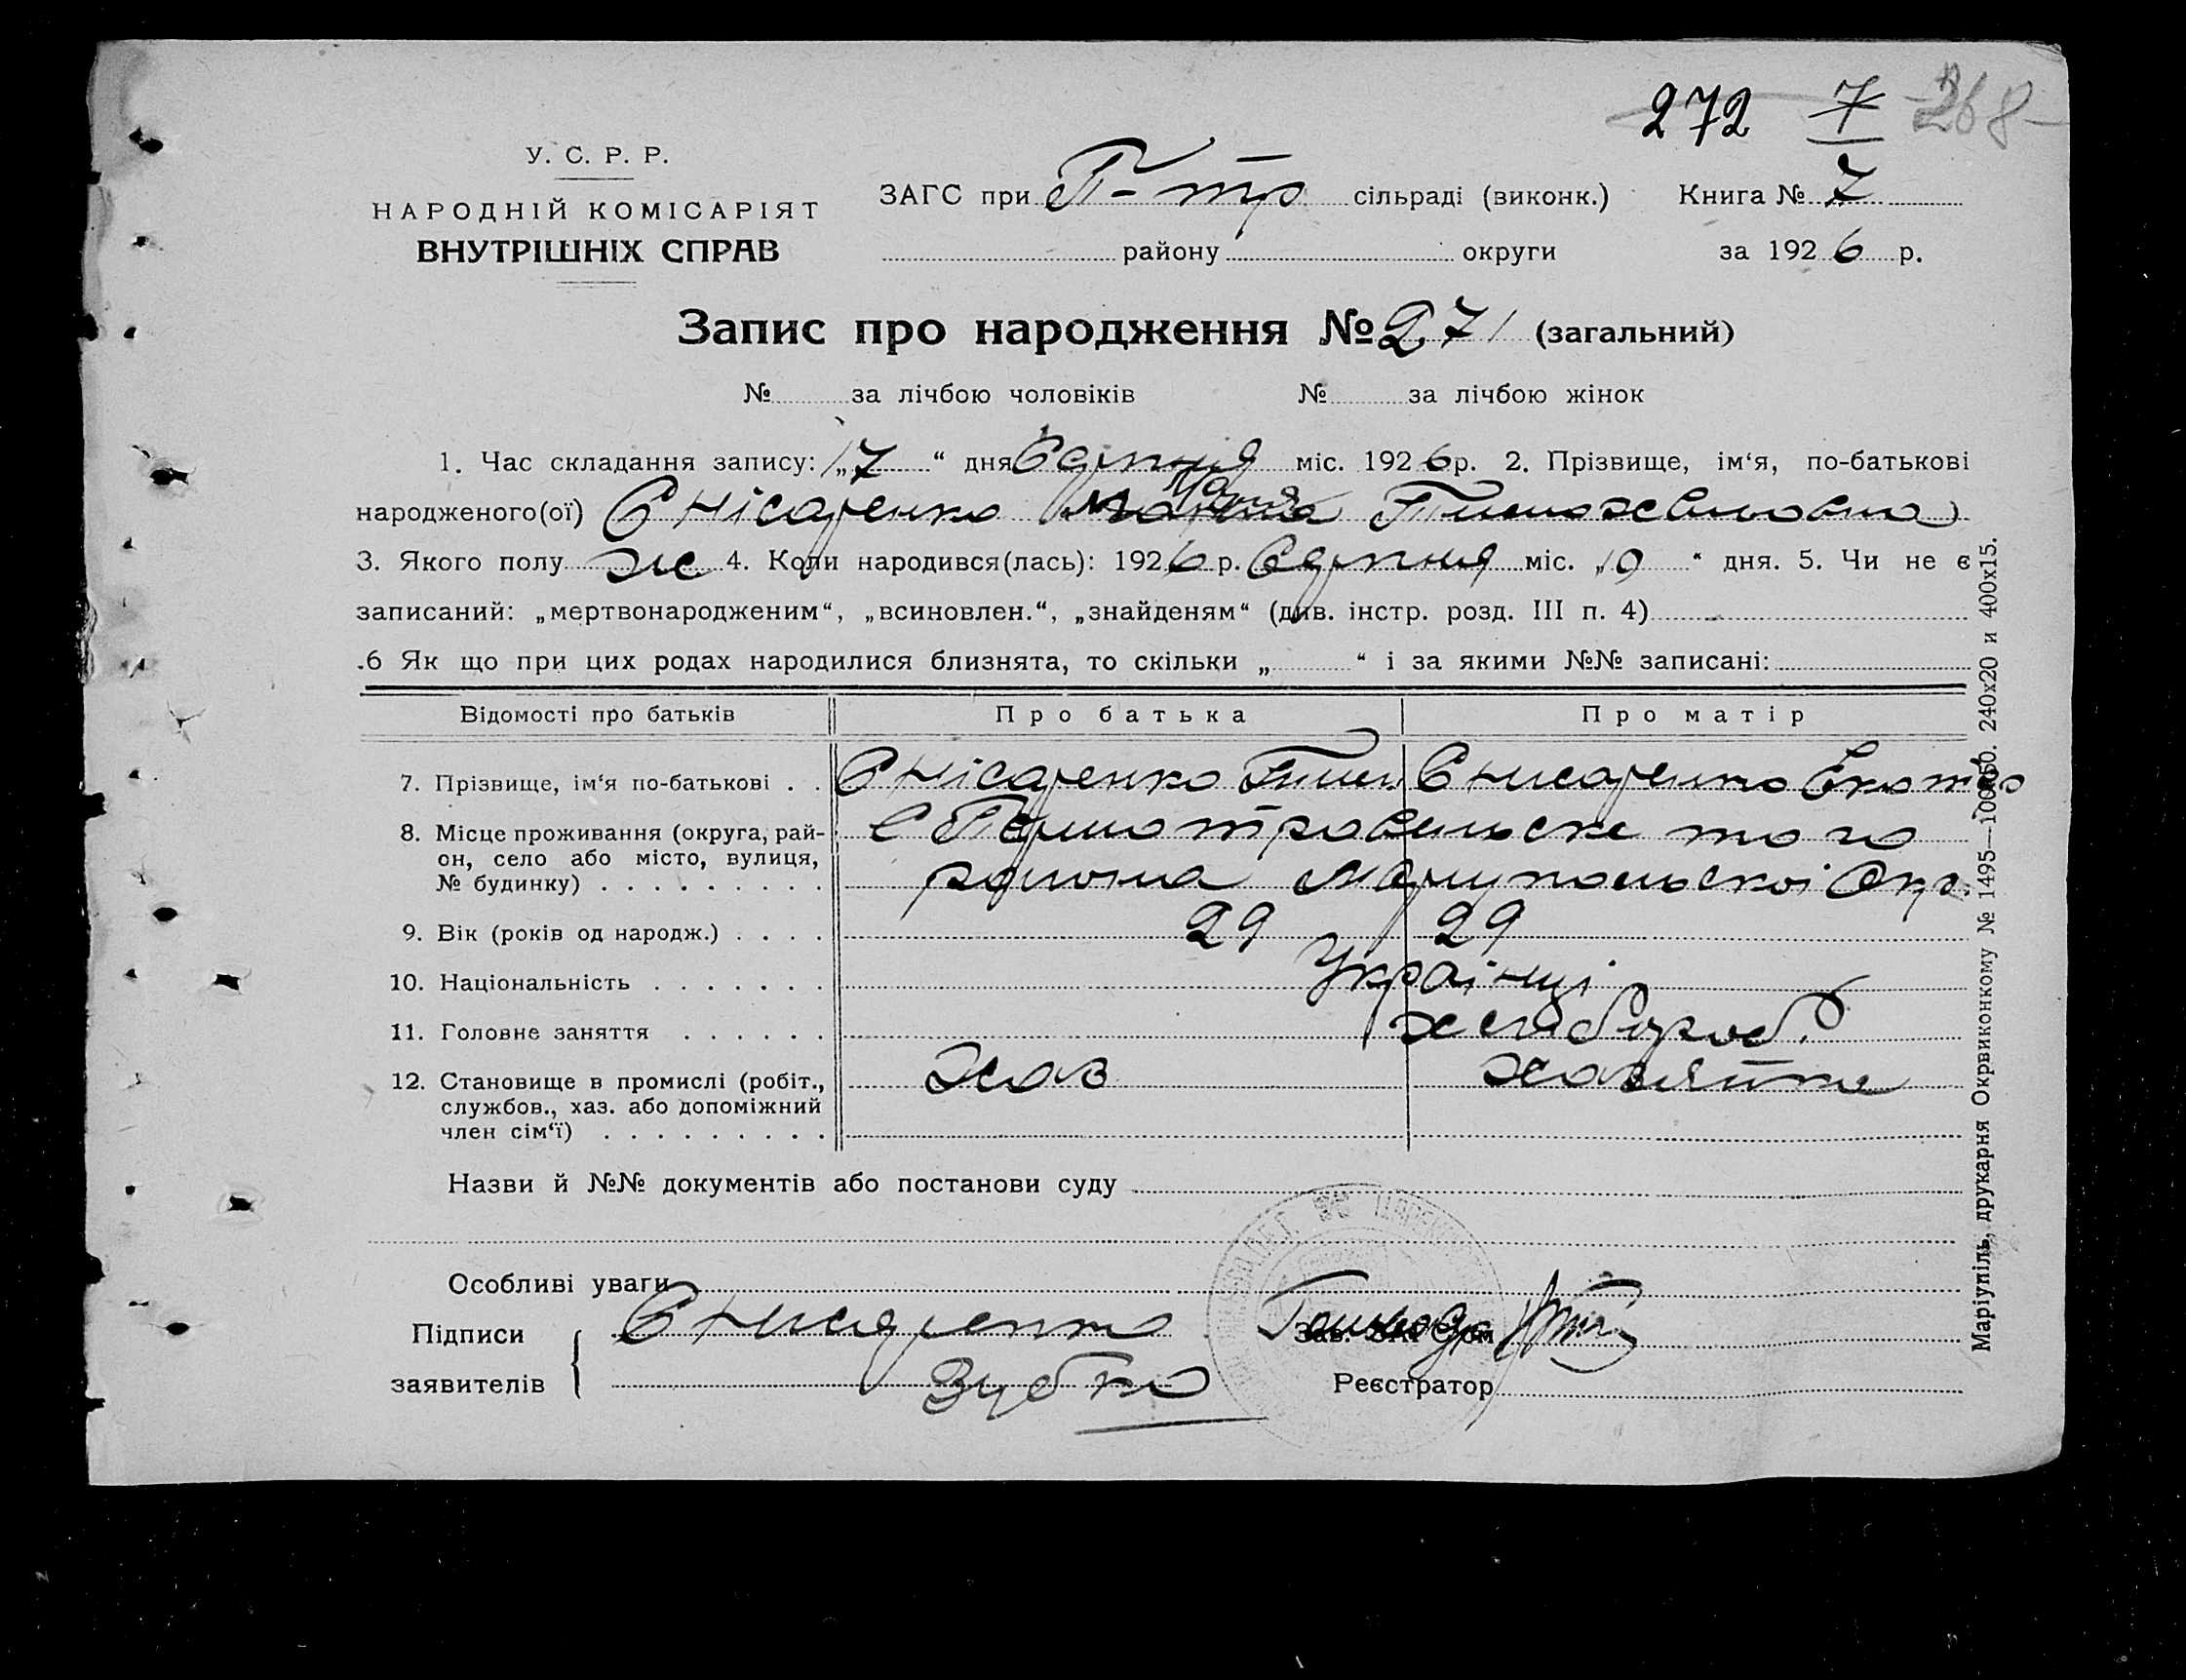 272 7 268
У. С. Р. Р.
НАРОДНІЙ КОМІСАРІЯТ
ВНУТРІШНІХ СПРАВ
ЗАГС при П-тр сільраді (виконк.) Книга № 7
району округи за 1926 р.
Запис про народження № 271 (загальний)
№ за лічбою чоловіків № за лічбою жінок
1. Час складання запису: „17“ дня Серпня міс. 1926 р. 2. Прізвище, ім‘я, по-батькові
народженого(ої) Снісаренко Марія
3. Якого полу ж 4. Коли народився(лась): 1926 р. Серпня міс. „10“ дня. 5. Чи не є
записаний: „мертвонародженим“, „всиновлен.“, „знайденям“ (див. інстр. розд. III п. 4)
.6 Як що при цих родах народилися близнята, то скільки „ “ і за якими №№ записані:
Відомості про батьків Про батька Про матір
7. Прізвище, ім‘я по-батькові . . Снісаренко Тим. Снисаренко Екат
8. Місце проживання (округа, рай-
он, село або місто, вулиця,
№ будинку) . . . . . . . . .
с того
района Мариупольскої Окр.
9. Вік (років од народж.) . . . . 29 29
10. Національність . . . . . . . Українці
11. Головне заняття . . . . . . хлебороб.
12. Становище в промислі (робіт.,
службов., хаз. або допоміжний
член сім‘ї) . . . . . . . . .
Хаз хазяйка
Назви й №№ документів або постанови суду
Особливі уваги
Підписи
заявителів
Снисаренко
Зубко
Реєстратор
Маріупіль, друкарня Окрвиконкому № 1495—100000. 240x20 и 400x15.